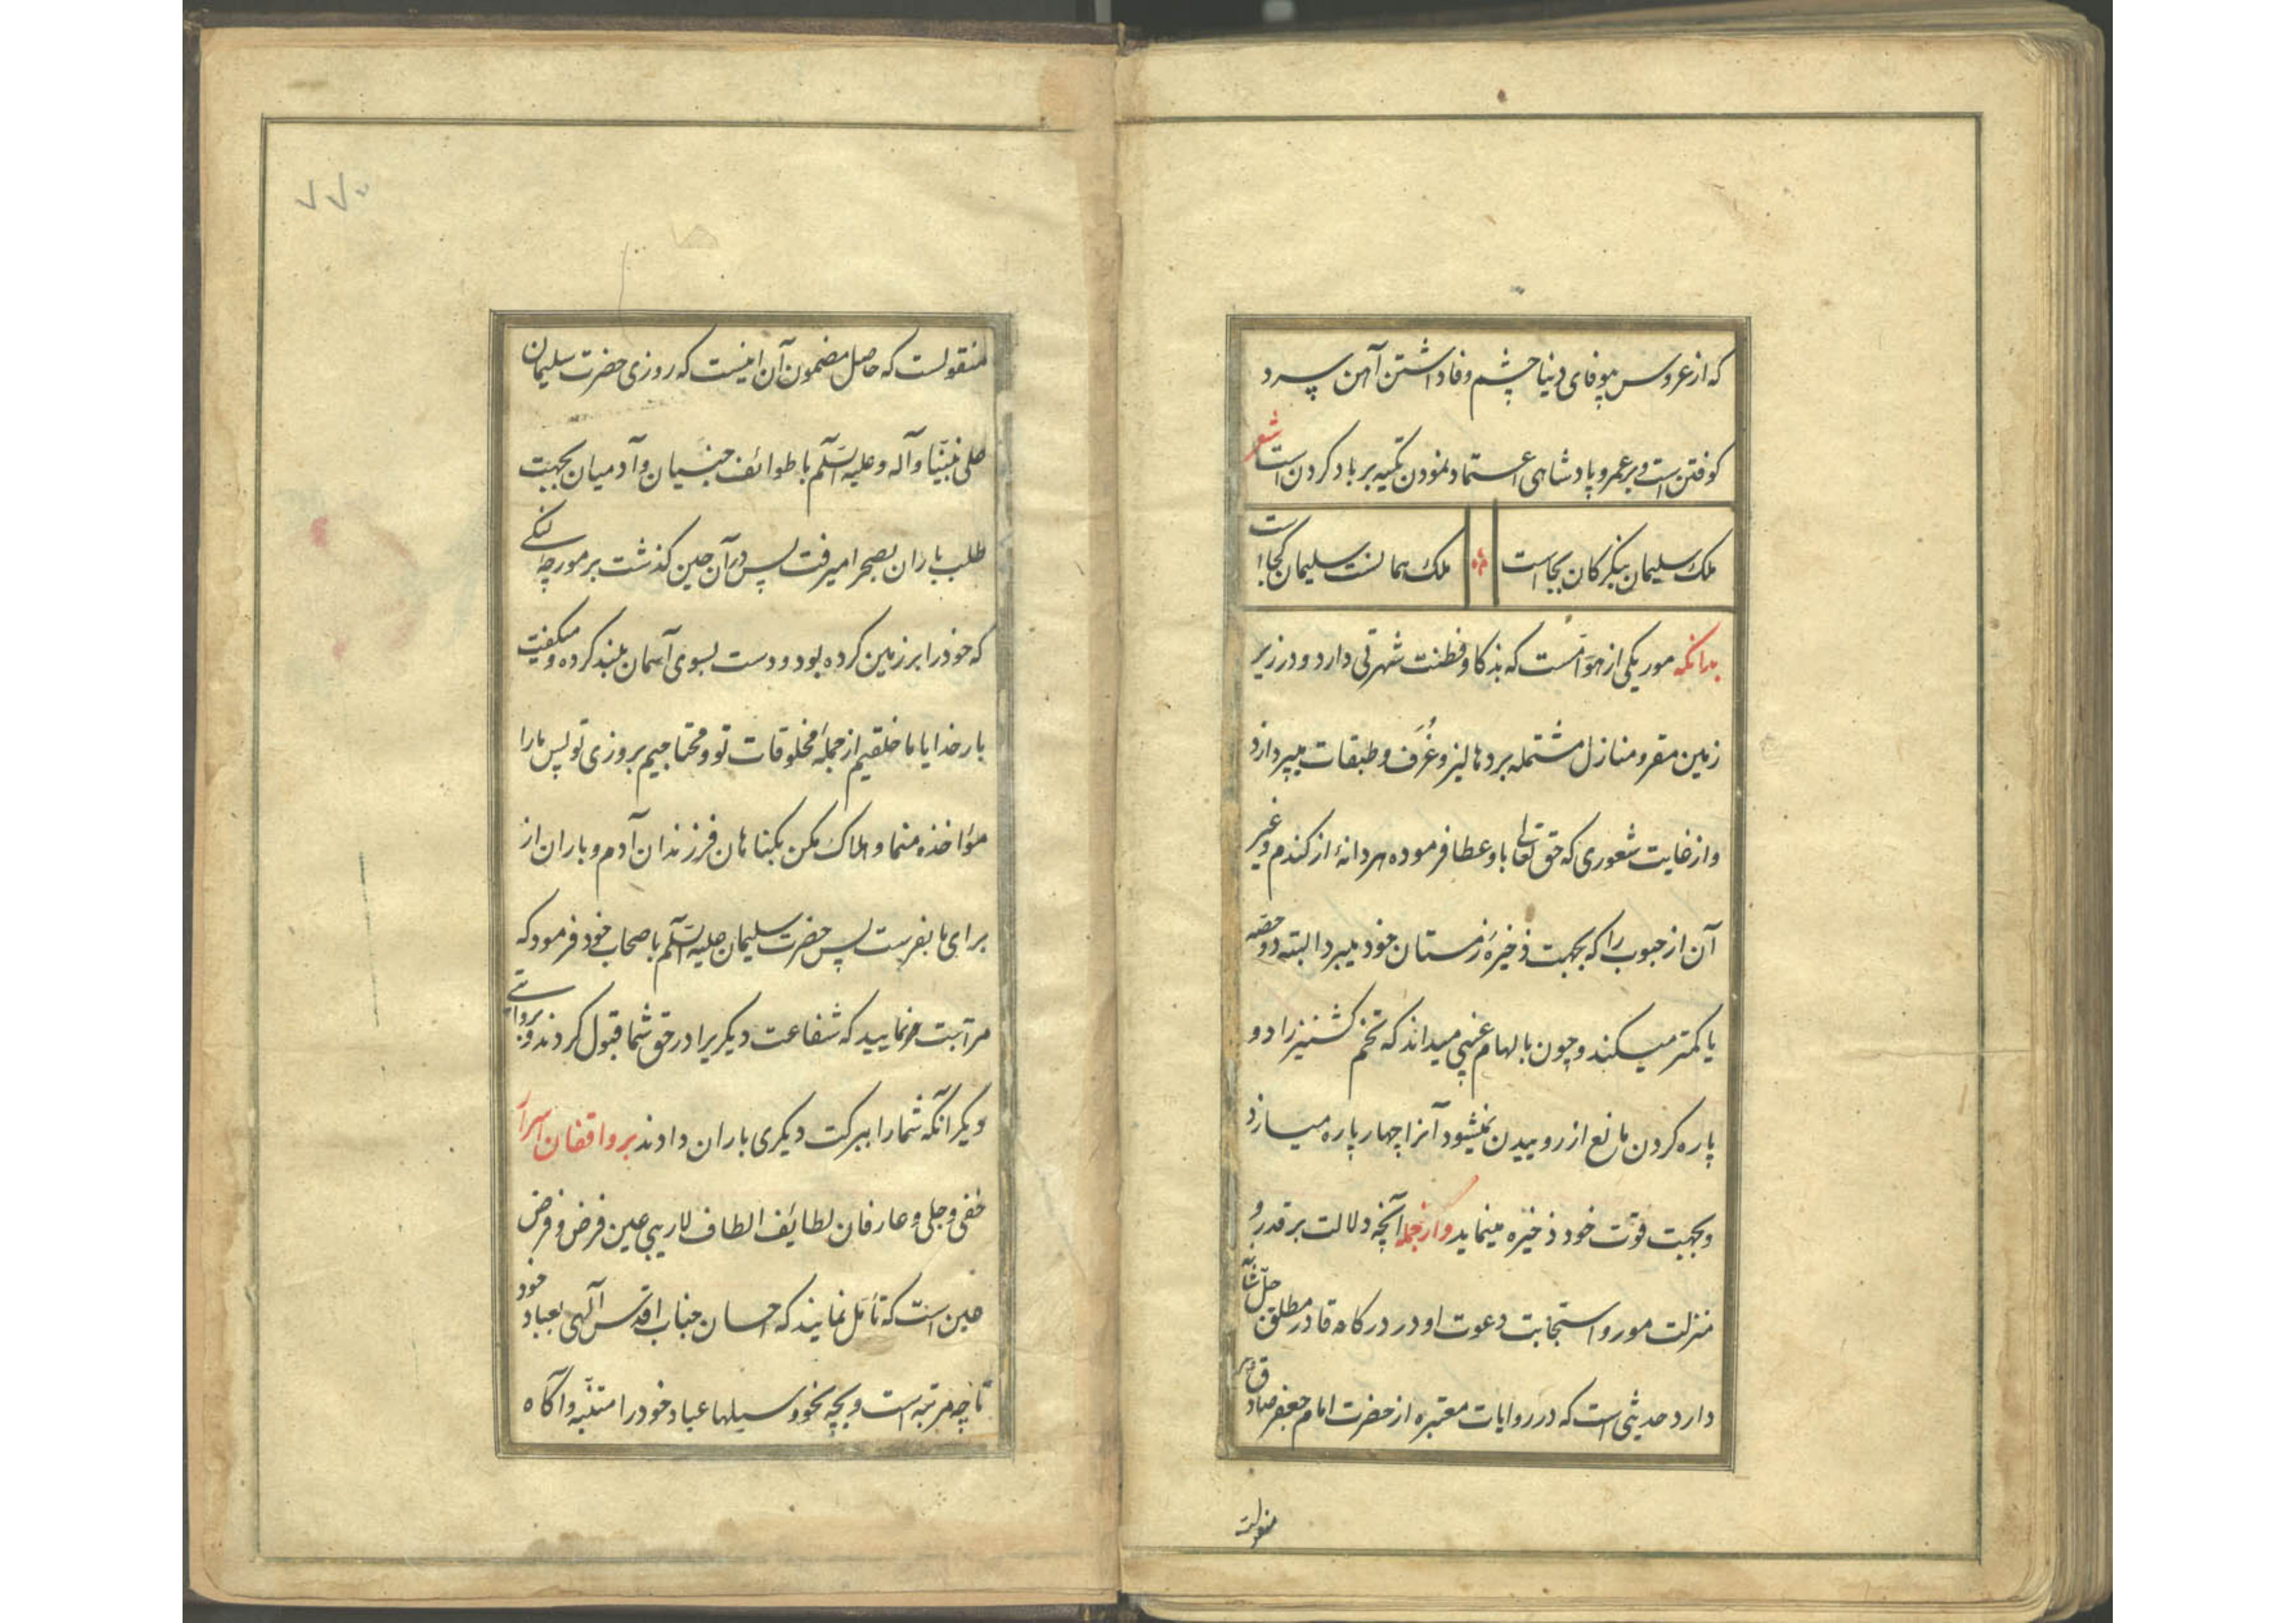 که از عروس بیوفای دنیا چشم وفا داشتن آهن سرد
کوفتن است و بر عمر و پادشاهی اعتماد نمودن تکیه بر باد کردن است شعر
ملک سلیمان بنگر کان کجاست ملک همانست سلیمان کجاست
بدانکه مور یکی از هوامست که بذکا و فطنت شهرتی دارد و در زیر
زمین مقر و منازل مشتمله بر دهالیز و غُرَف و طبقات میپردازد
و از غایت شعوری که حق تعالی باو عطا فرموده هر دانهٔ از کندم و غیر
آن از حبوب را که بجهت ذخیرهٔ زمستان خود میبرد البته دو حصه
یا کمتر میکند و چون بالهام غیبی میداند که تخم کشنیز را دو
پاره کردن مانع از روییدن نمیشود آنرا چهار پاره میسازد
و بجهت قوّت خود ذخیره مینماید و از جمله آنچه دلالت بر قدر و
منزلت مور و استجابت دعوت او در درکاه قادر مطلق جلّ شأنه
دارد حدیثی است که در روایات معتبره از حضرت امام جعفر صادق
منقولست
منقولست که حاصل مضمون آن اینست که روزی حضرت سلیمان
علی نبیّنا و آله و علیه السّلم با طوائف جنیان و آدمیان بجهت
طلب باران بصحرا میرفت پس در آن حین کذشت بر مورچهٔ لنکی
که خود را بر زمین کرده بود و دست بسوی آسمان بلند کرده و میکفت
بار خدایا ما خلقیم از جملهٔ مخلوقات تو و محتاجیم بروزی تو پس ما را
مؤاخذه منما و هلاک مکن بکناهان فرزندان آدم و باران از
برای ما بفرست پس حضرت سلیمان علیه السّلم باصحاب خود فرمود که
مراجعت نمایید که شفاعت دیکریرا در حق شما قبول کردند و بروایتی
دیکر آنکه شما را ببرکت دیکری باران دادند بر واقفان اسرار
خفی و جلی و عارفان لطائف الطاف لاریبی عین فرض و فرض
عین است که تأمل نمایند که احسان جناب اقدس آلهی بعباد خود
تا چه مرتبه است و بچه نحو وسیلها عباد خود را متنبّه و آکاه